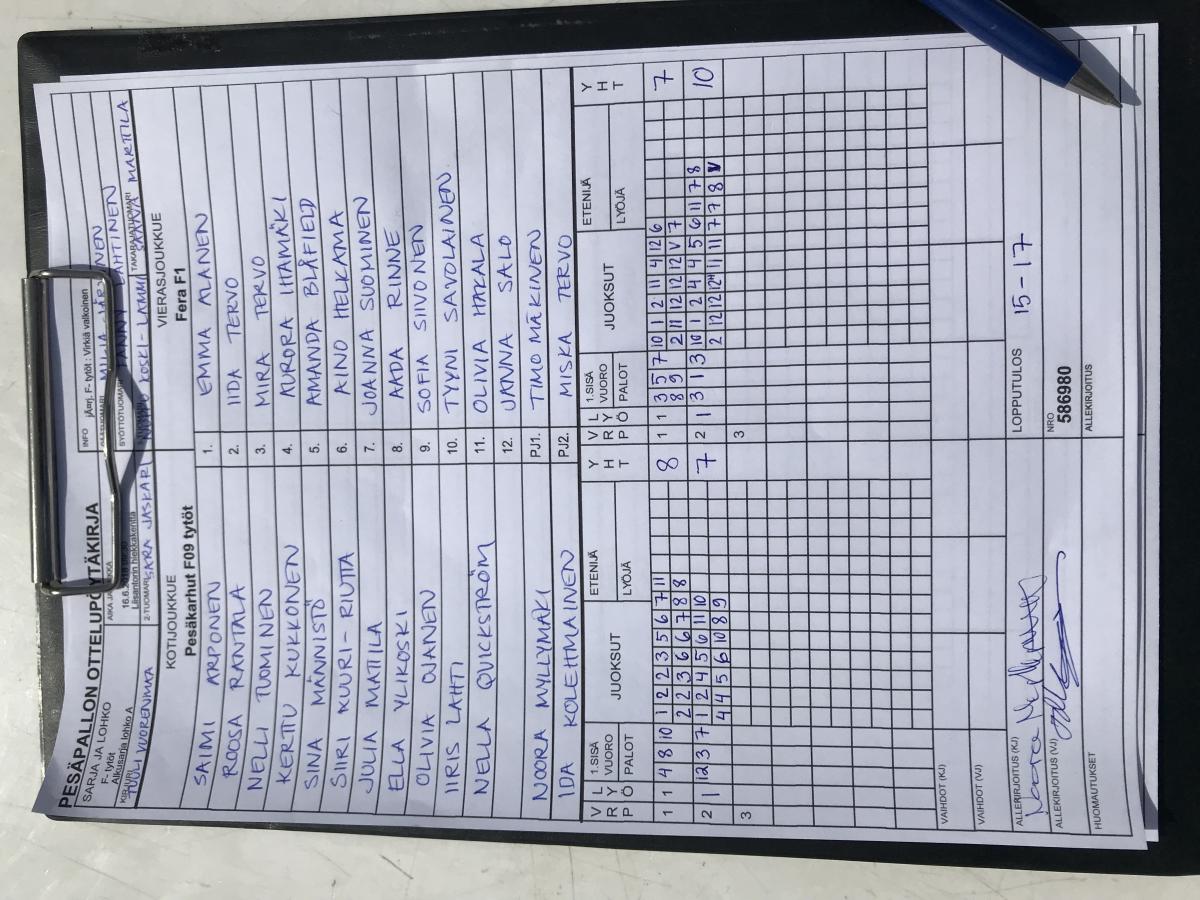 PESÄPALLON OTTELUPÖYTÄKIRJA
INFO jÄrrj. F- tytöt : Virkiä valkoinen
SARJA JA LOHKO
F- tytöt
Alkusarja lohko A
SYÖTTÖTUOMARI FANNY LAHTINEN
TUULI VUORENMAA
Liisantorin hiekkakenttä
2-TUOMARI SARA JASKARI
KOSKI-LAMMI
TAKARAJATUOMARI
MARTTILA
KOTIJOUKKUE VIERASJOUKKUE
Pesäkarhut F09 tytöt Fera F1
SAIMI ARPONEN 1. EMMA ALANEN
ROOSA RANTALA 2. IIDA TERVO
NELLI TUOMINEN 3. MIRA TERVO
KERTTU KUKKONEN 4. AURORA IHTAMÄKI
SINA MÄNNISTÖ 5. AMANDA BLÅFIELD
SIIRI KUURI-RIUTTA 6. AINO HELKAMA
JULIA MATTILA 7. JOANNA SUOMINEN
ELLA YLIKOSKI 8. AADA RINNE
OLIVIA OJANEN 9. SOFIA SIIVONEN
IIRIS LAHTI 10. TYYNI SAVOLAINEN
NELLA QUICKSTRÖM 11. OLIVIA HAKALA
12. JANNA SALO
NOORA MYLLYMÄKI PJ1. TIMO MÄKINEN
IDA KOLEHMAINEN PJ2. MISKA TERVO
VRP LYÖ 1.SISÄ VUORO PALOT JUOKSUT ETENIJÄ LYÖJÄ YHT VRP LYÖ 1.SISÄ VUORO PALOT JUOKSUT ETENIJÄ LYÖJÄ YHT
1 1 4 8 10 1 2 2 3 5 6 7 11 8 1 1 3 5 7 10 1 2 11 4 12 6 7
2 2 3 6 6 7 8 8 8 9 2 11 12 12 12 V 7
2 1 12 3 7 1 2 4 5 6 11 10 7 2 1 3 1 3 10 1 2 4 4 5 6 11 7 8 10
4 4 5 6 10 8 9 2 12 12 12 11 11 7 7 8
3 3
VAIHDOT (KJ)
VAIHDOT (VJ)
ALLEKIRJOITUS (KJ) LOPPUTULOS 15-17
Noora Myllymäki
ALLEKIRJOITUS (VJ) NRO
586980
HUOMAUTUKSET ALLEKIRJOITUS